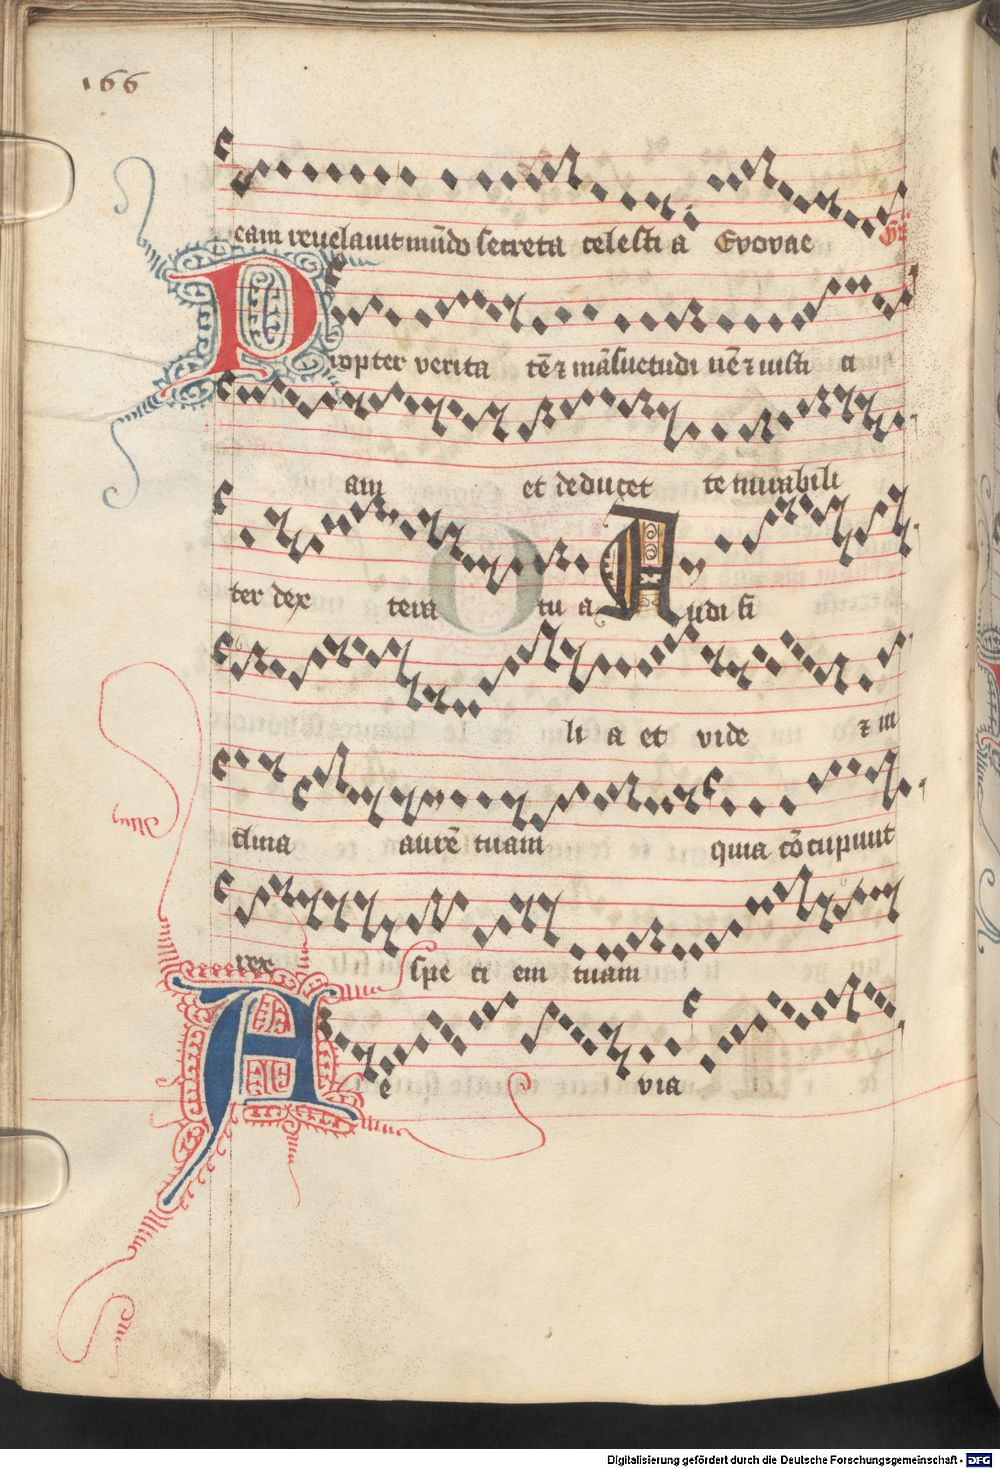 166
eam reuelauit mūdo secreta celesti a Evovae Gr̄
Propter verita tē ⁊ māsuetudi nē ⁊ iusti ci
am et deducet te mirabili
ter dex tera tu a Audi fi
li a et vide ⁊ in
clina aurē tuam quia cōcupiuit
rex spe ci em tuam
A e via
Digitalisierung gefördert durch die Deutsche Forschungsgemeinschaft - DFG